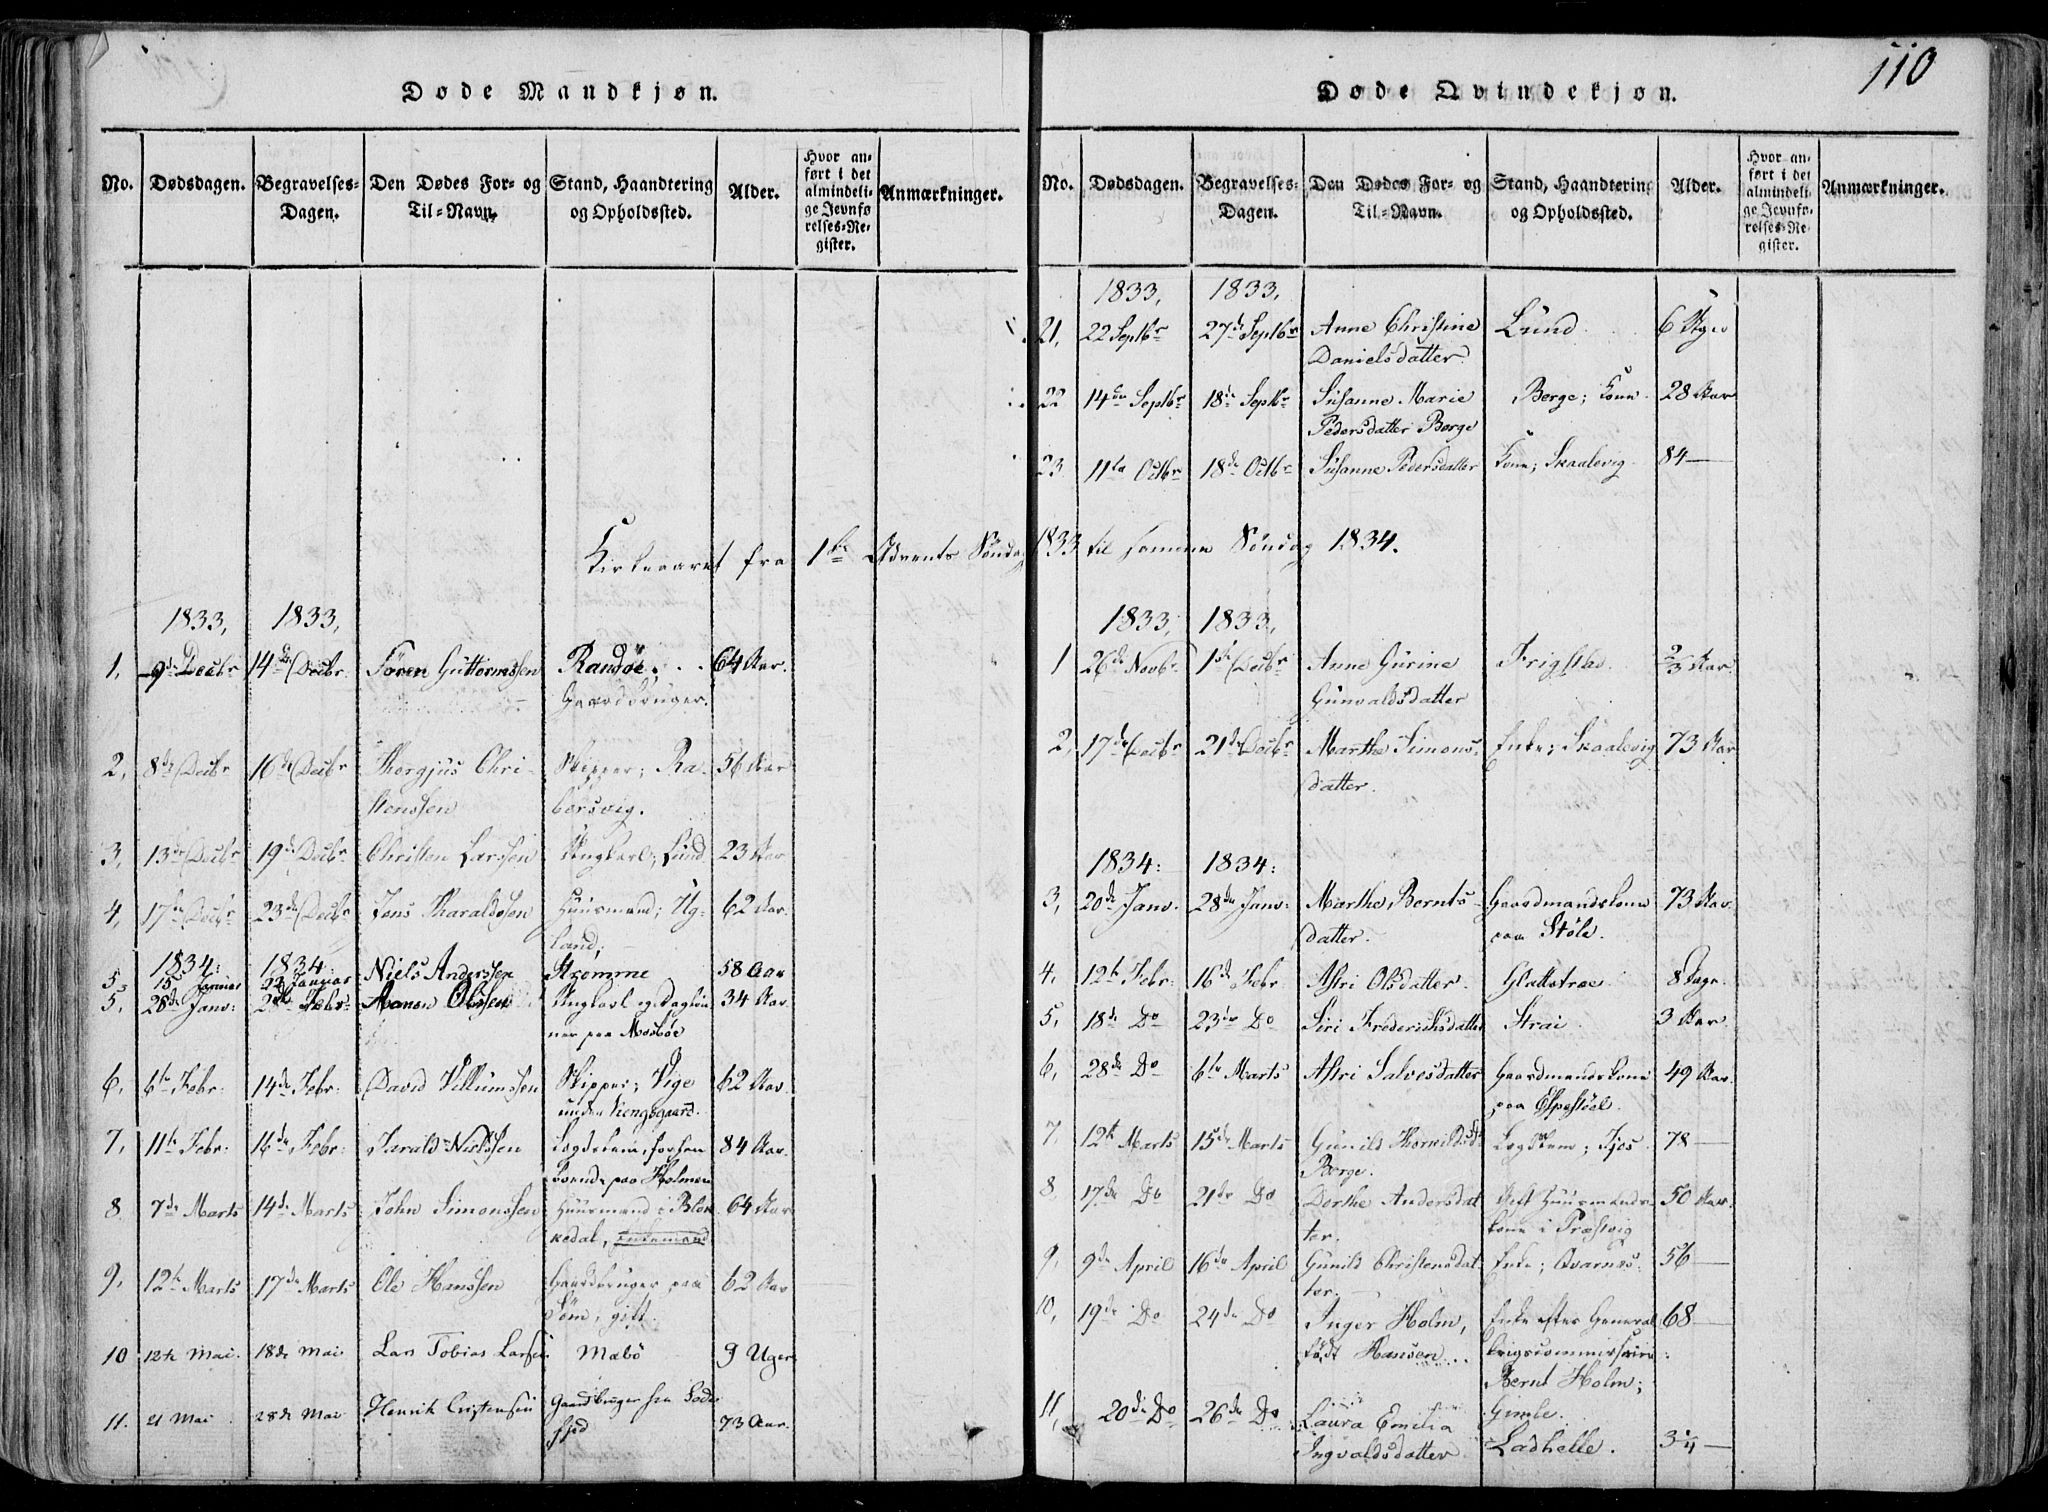 110
Døde Mandkjøn.
No. Dødsdagen. Begravelses-Dagen. Den Dødes For- og Til-Navn. Stand, Haandtering og Opholdssted. Alder. Hvor anført i det almindelige Jevnførelses-Register. Anmærkninger.
Kirkeaaret fra 1ste Advents Søndag 1833 til samme Søndag 1834.
1833, 1833,
1, 9de Decbr 14de Decbr. Søren Guttormssen Randøe, 64 Aar.
Gaardbruger.
2, 8de Decbr 16de Decbr Thorgjus Chri- Skipper; Ra- 56 Aar
stenssen borsvig.
3, 13de Decbr 19de Decbr Christen Larssen Ungkarl; Lund 23 Aar
4, 17de Decbr 23de Decbr Jens Tharaldssen Huusmand; Ug- 62 Aar.
land;
1834: 1834:
5, 15 Januar 22 Januar Niels Anderssen Strømme 58 Aar
5, 28de Janv: Febr: Olssen Ungkarl og Dagløn- 34 Aar.
ner paa Mosbøe
6, 6te Febr. 14de Febr: David Villumssen Skipper; Vige 62 Aar.
under Kongsgaard.
7, 11te Febr: 16de Febr: Harald Nielssen Lægdslem, forhen 84 Aar.
Bonde paa Holmen
8 7de Marts 14de Marts John Simonssen Huusmand i Blek- 64 Aar
kedal, Enkemand
9, 12te Marts 17de Marts Ole Hanssen Gaardbruger paa 62 Aar
Søm, gift.
10 12te Mai. 18de Mai Lars Tobias Larsen Mæbø 9 Uger
11. 21 Mai 28de Mai Henrik Cristensen Gaardbruger fra 73 Aar.
Døde Qvindekjøn.
No. Dødsdagen. Begravelses-Dagen. Den Dødes For- og Til-Navn. Stand, Haandtering og Opholdssted. Alder. Hvor anført i det almindelige Jevnførelses-Register. Anmærkninger.
1833, 1833,
21, 22 Septbr 27de Septbr Anne Christine Lund. 6 Uger
Danielsdatter.
22 14de Septbr 18de Septbr Susanne Marie Berge; Kone 28 Aar
Pedersdatter Berge
23 11te Octbr 18de Octbr Susanne Pedersdatter Kone; Skaalevig 84 —
1833, 1833,
1 26de Novbr 1ste Decbr Anne Gurine Frigstad 2/3 Aar.
Gunvaldsdatter
2, 17de Decbr 21de Decbr Marthe Simons- Enke; Skaalevig 73 Aar
datter.
1834: 1834:
3, 20de Janv. 28de Janv: Marthe Bernts- Gaardmandskone 73 Aar.
datter. paa Støle.
4, 12te Febr: 16de Febr Astri Olsdatter. Glattetræe. 8 Dage.
5, 18de Do 23de Do Siri Frederichsdatter Strai. 3 Aar
6, 28de Do 6te Marts Astri Salvesdatter Gaardmandskone 49 Aar.
paa Espestøel.
7, 12te Marts 15de Marts Gunild Lægdslem; Tjos 78 —
Berge.
8, 17de Do 21de Do Dorthe Andersdat- Gift Huusmands- 50 Aar.
ter. kone i Præstvig
9, 9de April 16de April Gunild Christensdat- Enke; Qvarnæs. 56 —
ter.
10, 19de Do 24de Do Inger Holm, Enke efter General- 68 —
født Hansen krigscommissair
Bernt Holm;
Gimle.
11, 20de Do 26de Do Laura Emilia Ladhelle. 3/4 —
Ingvaldsdatter